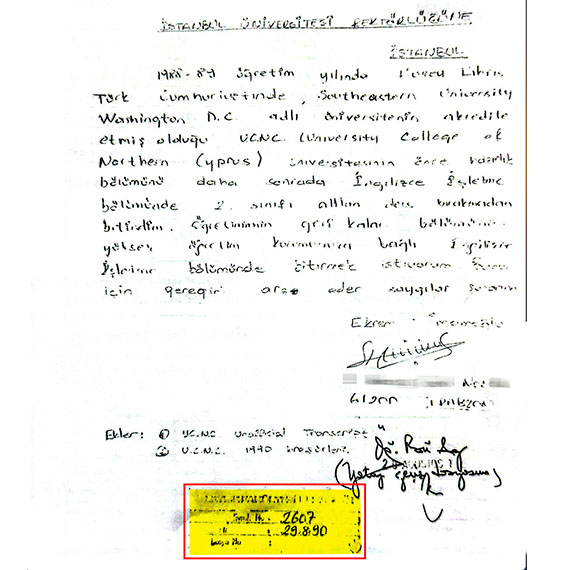 İSTANBUL ÜNİVERSİTESİ REKTÖRLÜĞÜNE
İSTANBUL
1988-89 öğretim yılında Kuzey Kıbrıs
Türk Cumhuriyetinde, Southeastern University
Washington D.C. adlı üniversitenin akredite
etmiş olduğu U.C.N.C. (University College of
Northern Cyprus) üniversitesinin önce hazırlık
bölümünü daha sonrada İngilizce İşletme
bölümünde 2. sınıfı alttan ders bırakmadan
bitirdim. Öğretimimin geri kalan bölümünü
yüksek öğretim kurumunun bağlı İngilizce
İşletme bölümünde bitirmek istiyorum
için gereğini arz eder saygılar sunarım
Ekrem İmamoğlu
61200 TRABZON
Ekler: 1 U.C.N.C. Unofficial Transcript
2 U.C.N.C. 1990 broşürleri
AĞUSTOS
(Yatay geçiş dosyasına)
2607
29.8.90